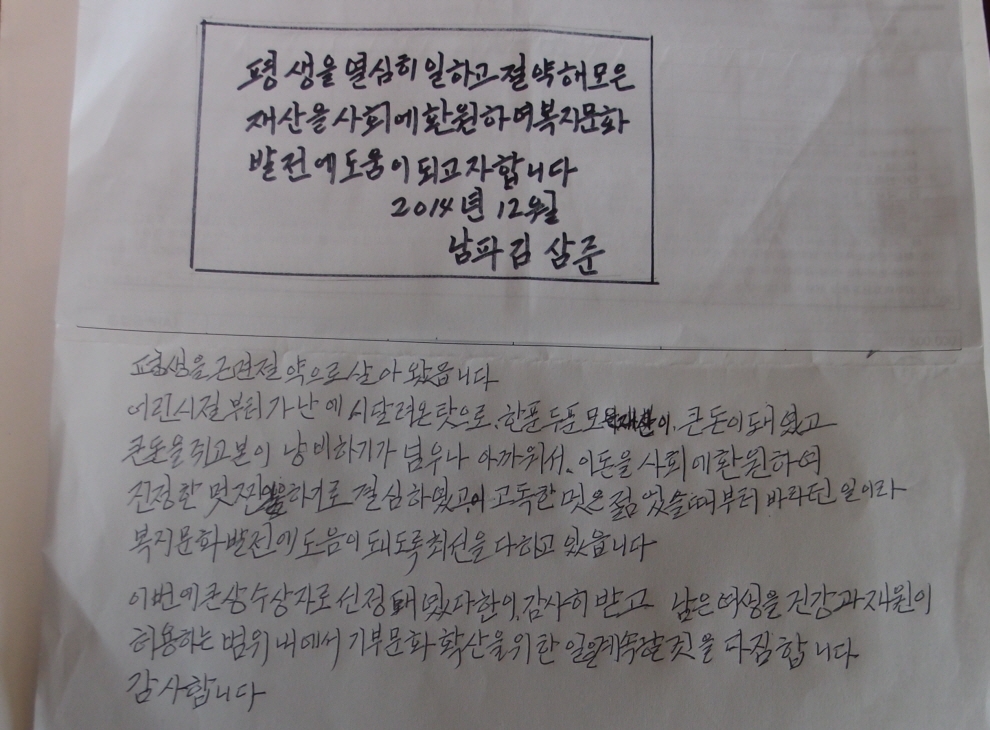 평생을 열심히 일하고 절약해 모은
재산을 사회에 환원하여 복지문화
발전에 도움이 되고자 합니다
2014년 12월
남파 김 삼준
평생을 근면절약으로 살아 왔읍니다
어린시절부터 가난에 시달려온 탓으로, 한푼 두푼 모 큰돈이 돼였고
큰돈을 쥐고본이 낭비하기가 넘우나 아까워서, 이돈을 사회에 환원하여
진정한 멋진 하기로 결심하였고, 이 고독한 멋은 젊었슬때부터 바라던 일이라
복지문화발전에 도움이 되도록 최선을 다하고 있읍니다
이번에 큰상 수상자로 선정 돼였다한이, 감사히 받고 남은 여생을 건강과 재원이
허용하는 범위 내에서 기부문화 확산을 위한 일을 계속할 것을 다짐합니다
감사합니다